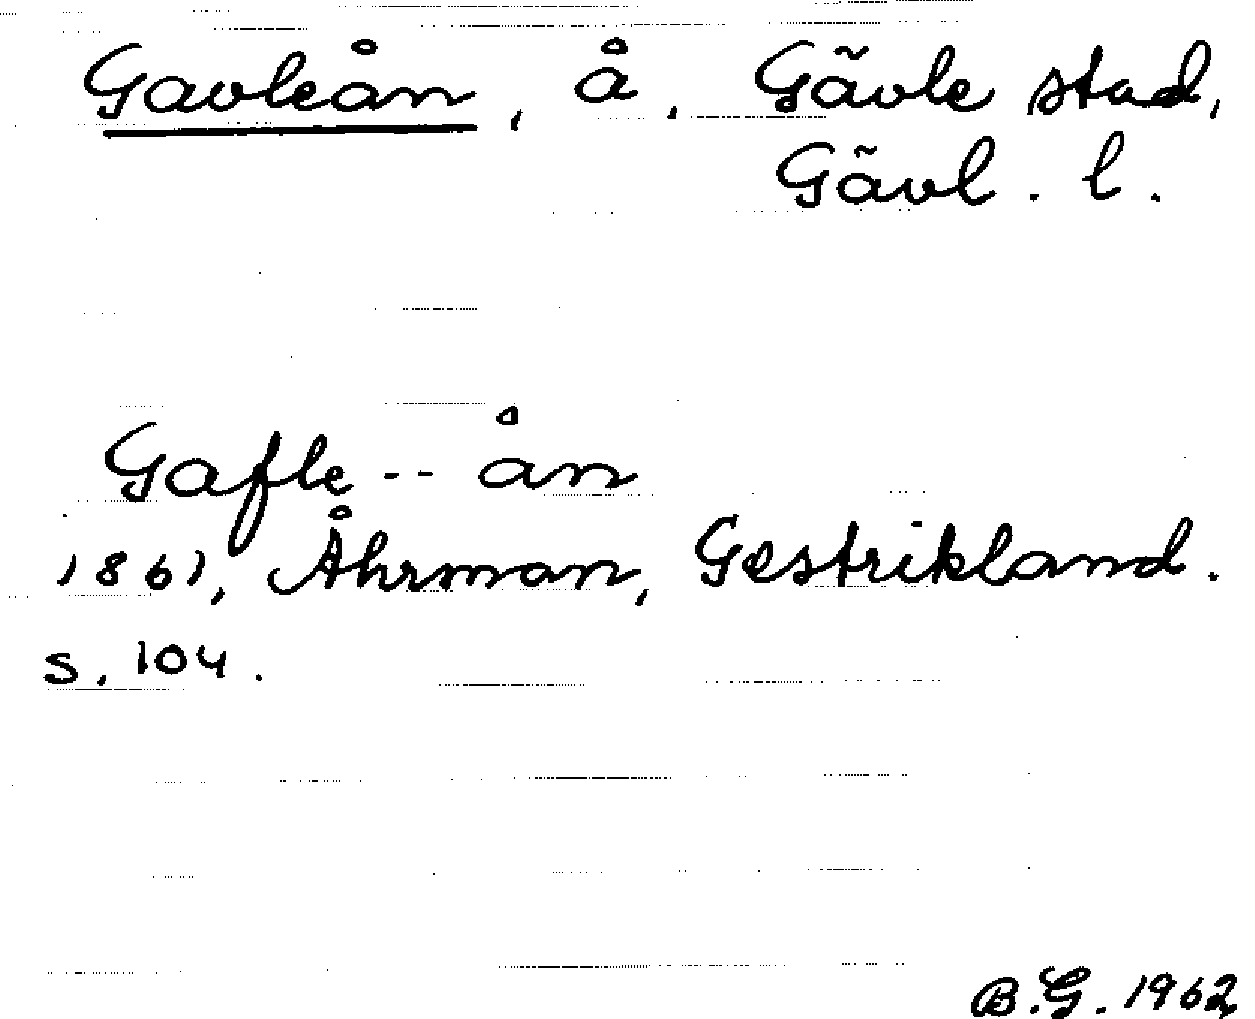 Gavleån, å, Gävle stad,
Gävl. l.
Gafle -- ån
1861, Åhrman, Gestrikland.
s. 104.
B.G. 1962